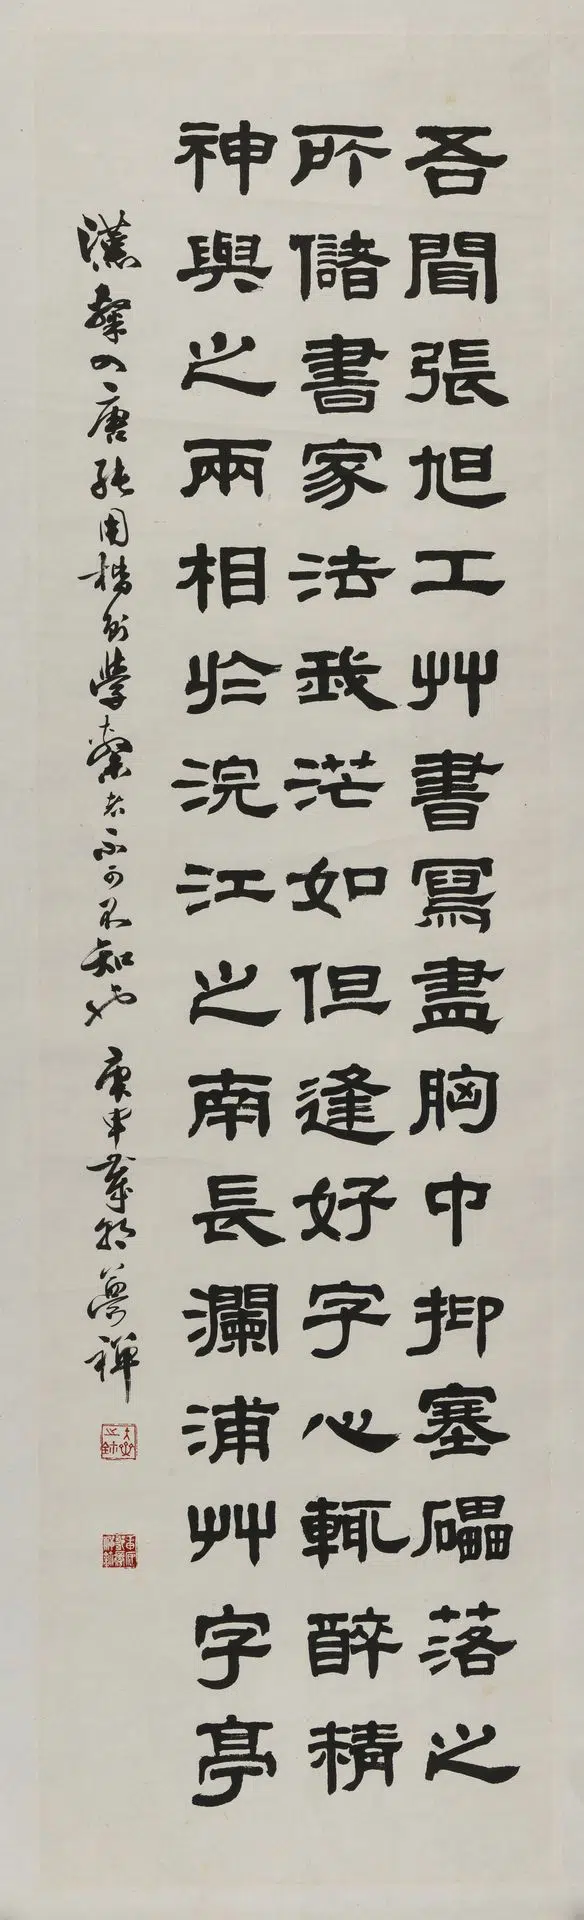 吾聞張旭工艸書寫盡胸中抑塞礧落之
所儲書家法我茫如但逢好字心輒醉精
神與之兩相於浣江之南長瀾浦艸字亭
漢隸唐純用楷則學隸者不可不知也 庚申歲朝 夢禪